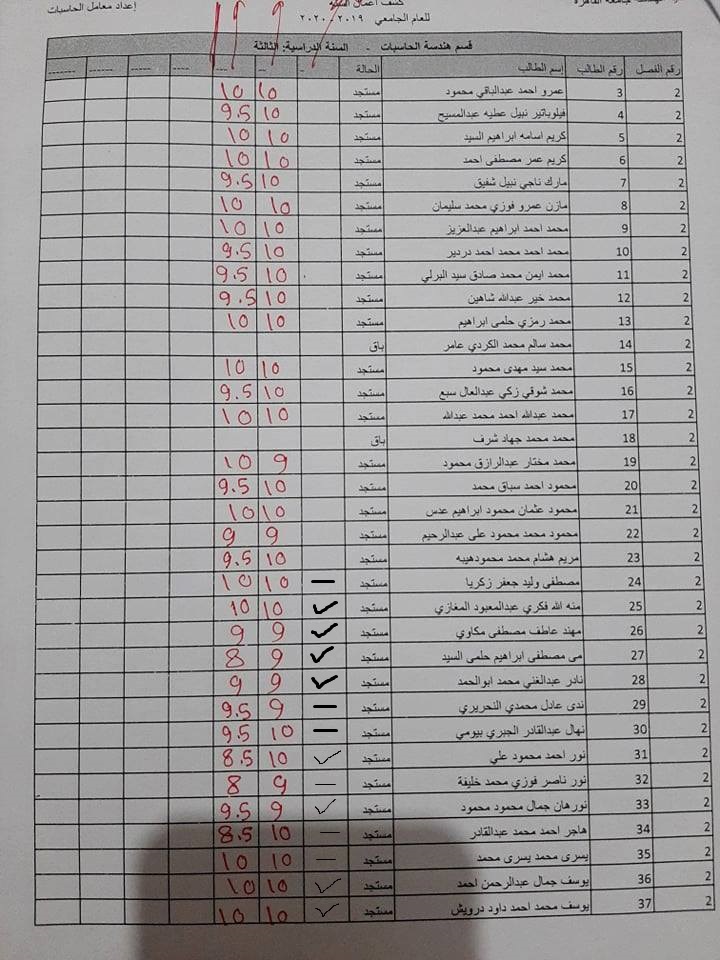 إعداد معامل الحاسبات
كشف اعمال السنة
للعام الجامعي ٢٠١٩ - ٢٠٢٠
جامعة القاهرة
قسم هندسة الحاسبات - السنة الدراسية: الثالثة
رقم الفصل رقم الطالب إسم الطالب الحالة
2 3 عمرو احمد عبدالباقي محمود مستجد 10 10
2 4 فيلوباتير نبيل عطيه عبدالمسيح مستجد 10 9.5
2 5 كريم اسامه ابراهيم السيد مستجد 10 10
2 6 كريم عمر مصطفى احمد مستجد 10 10
2 7 مارك ناجي نبيل شفيق مستجد 10 9.5
2 8 مازن عمرو فوزي محمد سليمان مستجد 10 10
2 9 محمد احمد ابراهيم عبدالعزيز مستجد 10 10
2 10 محمد احمد محمد احمد دردير مستجد 10 9.5
2 11 محمد ايمن محمد صادق سيد البرلي مستجد 10 9.5
2 12 محمد خير عبدالله شاهين مستجد 10 9.5
2 13 محمد رمزي حلمى ابراهيم مستجد 10 10
2 14 محمد سالم محمد الكردي عامر باق
2 15 محمد سيد مهدى محمود مستجد 10 10
2 16 محمد شوقي زكي عبدالعال سبع مستجد 10 9.5
2 17 محمد عبدالله احمد محمد عبدالله مستجد 10 10
2 18 محمد محمد جهاد شرف باق
2 19 محمد مختار عبدالرازق محمود مستجد 9 10
2 20 محمود احمد سباق محمد مستجد 10 9.5
2 21 محمود عثمان محمود ابراهيم عدس مستجد 10 10
2 22 محمود محمد محمود على عبدالرحيم مستجد 9 9
2 23 مريم هشام محمد محمودهيبه مستجد 10 9.5
2 24 مصطفى وليد جعفر زكريا مستجد – 10 10
2 25 منه الله فكري عبدالمعبود المغازي مستجد ✓ 10 10
2 26 مهند عاطف مصطفى مكاوي مستجد ✓ 9 9
2 27 مى مصطفى ابراهيم حلمى السيد مستجد ✓ 9 8
2 28 نادر عبدالغني محمد ابوالحمد مستجد ✓ 9 9
2 29 ندى عادل محمدي التحريري مستجد – 9 9.5
2 30 نهال عبدالقادر الجبري بيومي مستجد – 10 9.5
2 31 نور احمد محمود علي مستجد ✓ 10 8.5
2 32 نور ناصر فوزي محمد خليفة مستجد – 9 8
2 33 نورهان جمال محمود محمود مستجد ✓ 9 9.5
2 34 هاجر احمد محمد عبدالقادر مستجد – 10 8.5
2 35 يسرى محمد يسرى محمد مستجد – 10 10
2 36 يوسف جمال عبدالرحمن احمد مستجد ✓ 10 10
2 37 يوسف محمد احمد داود درويش مستجد ✓ 10 10